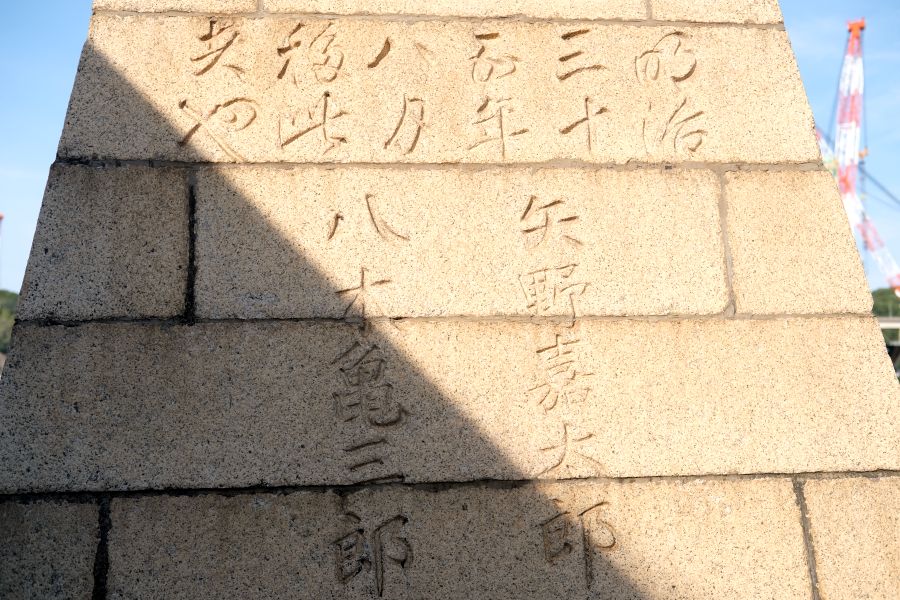 明治
三十
五年
八月
此
矢野嘉太郎
八木亀三郎